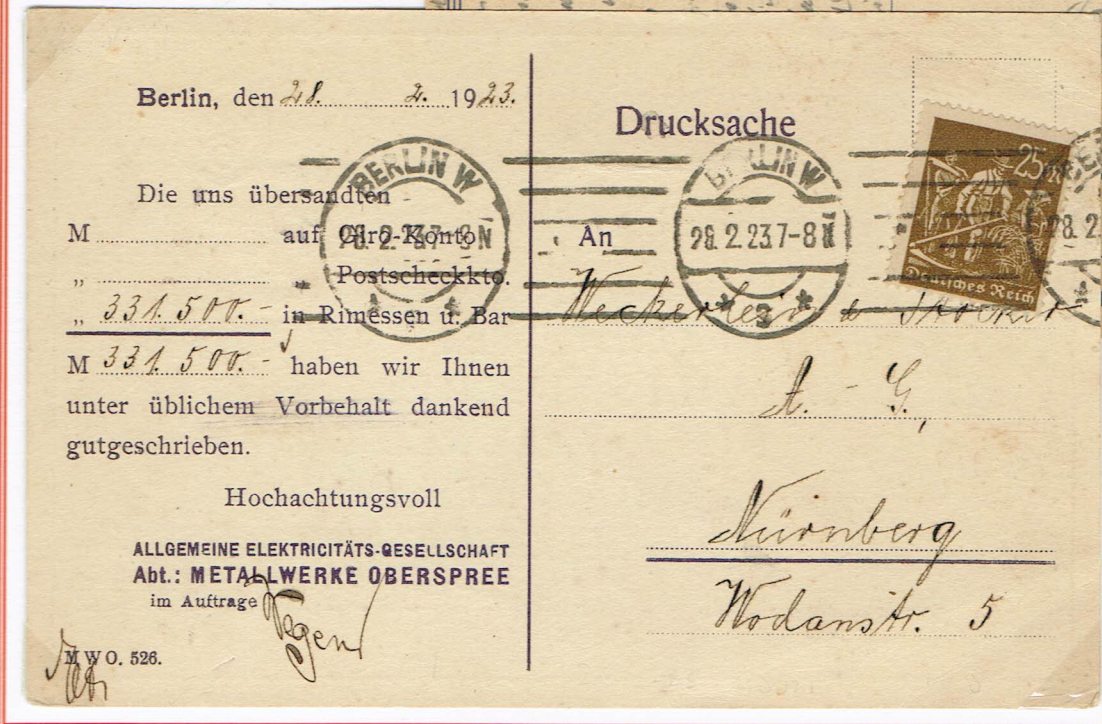 Berlin, den 28. 2. 1923.
Die uns übersandten
M auf Giro-Konto
„ „ Postscheckkto.
„ 331.500.- in Rimessen u. Bar
M 331.500.- haben wir Ihnen
unter üblichem Vorbehalt dankend
gutgeschrieben.
Hochachtungsvoll
ALLGEMEINE ELEKTRICITÄTS-GESELLSCHAFT
Abt.: METALLWERKE OBERSPREE
im Auftrage
M W O. 526.
Drucksache
BERLIN W
28.2.23.7-8N
BERLIN W
28.2.23.7-8N
* 8 *
28.2
25
Deutsches Reich
An
Weckerlein & Stöcker
A.-G.,
Nürnberg
Wodanstr. 5